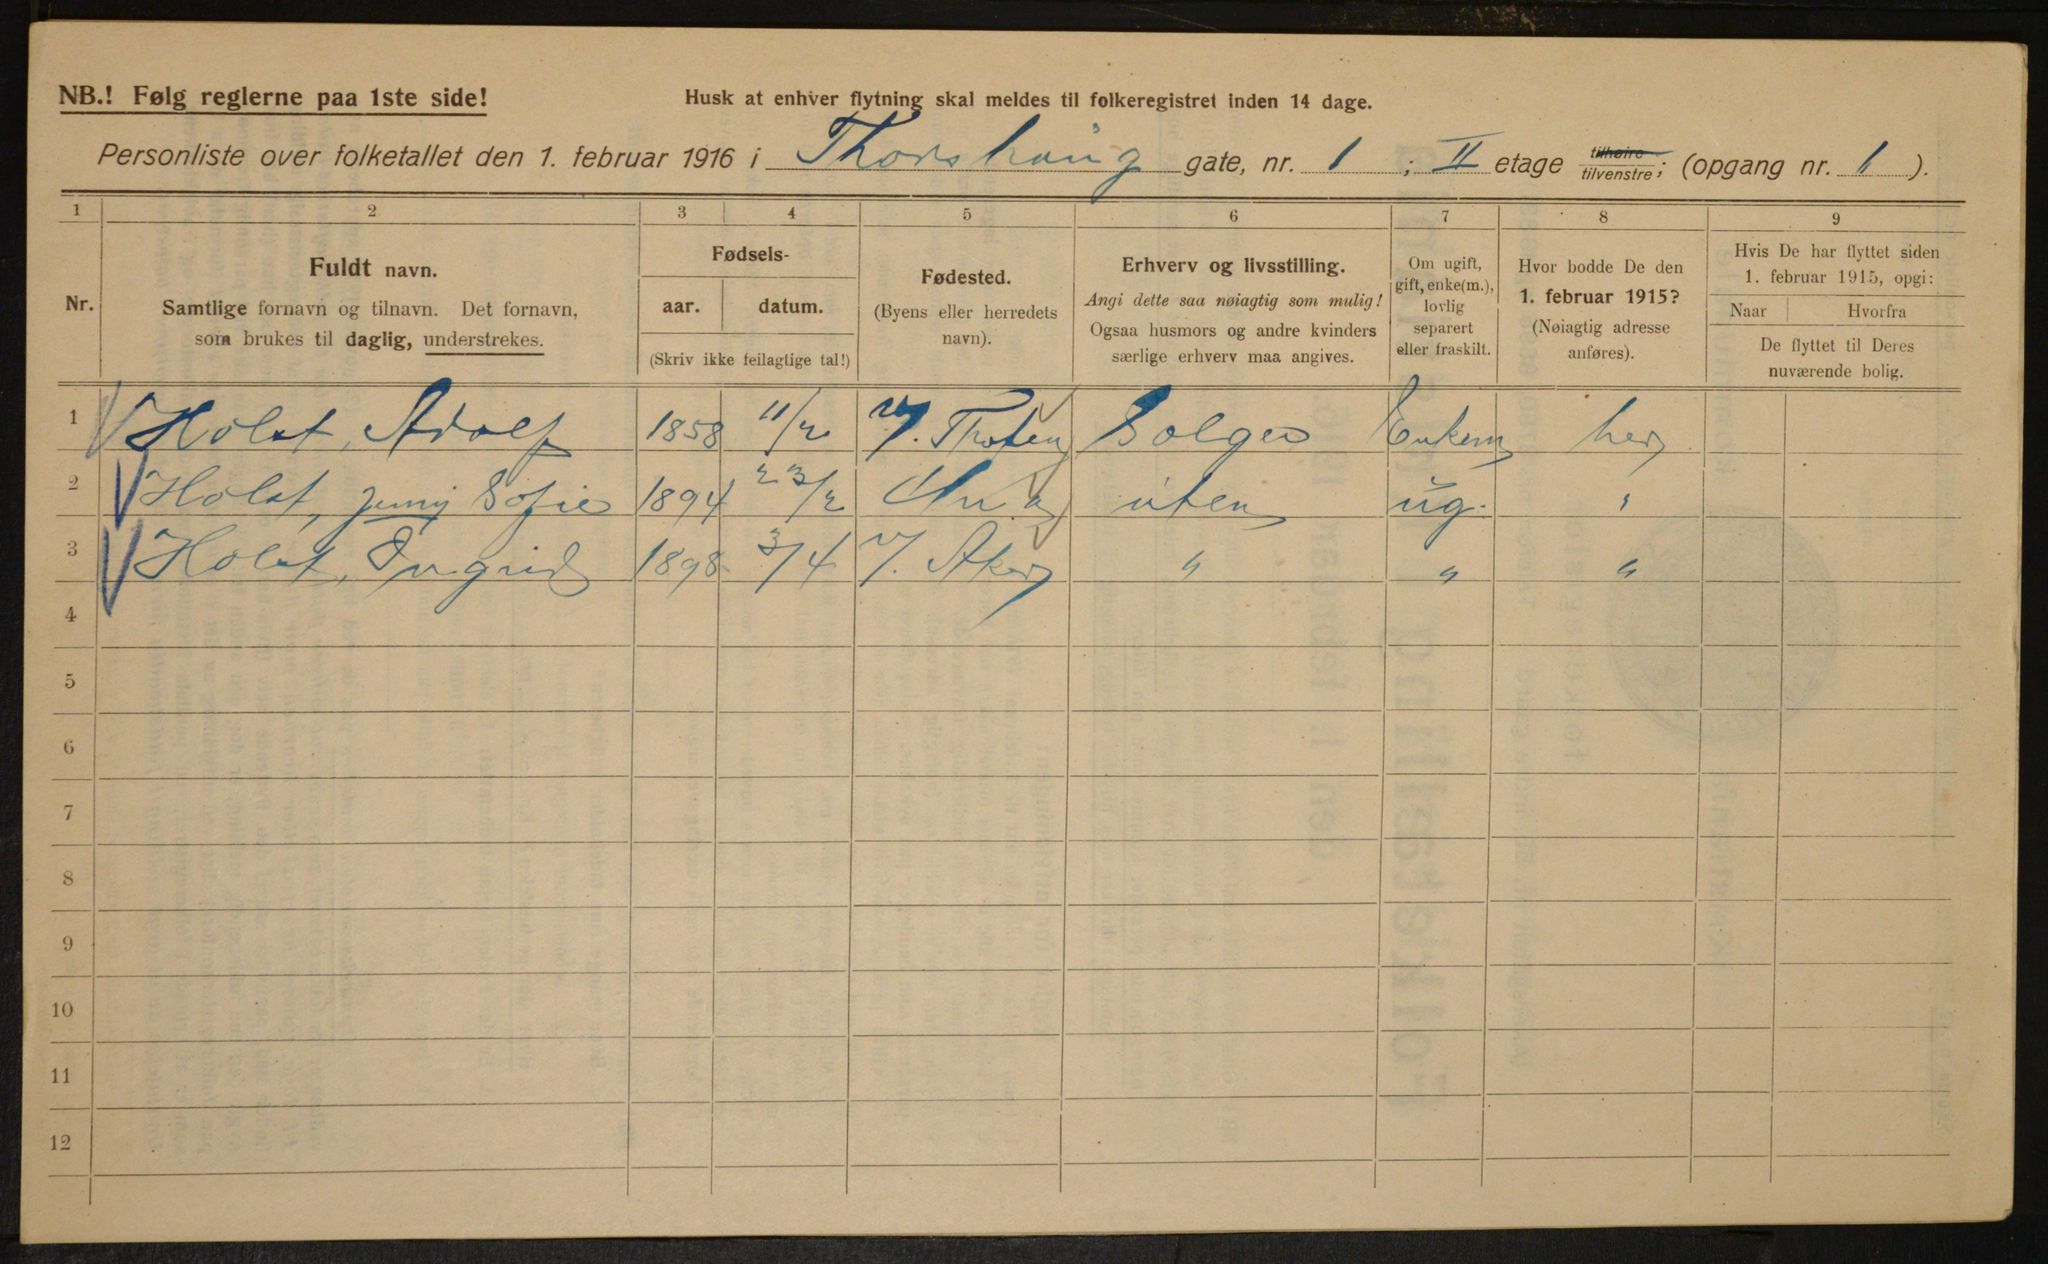 NB.! Følg reglerne paa 1ste side!
Husk at enhver flytning skal meldes til folkeregistret inden 14 dage.
Personliste over folketallet den 1. februar 1916 i Thorshaug gate, nr. 1 ; II etage tilhøire tilvenstre; (opgang nr. 1 ).
1 2 3 4 5 6 7 8 9
Nr.
Fuldt navn.
Samtlige fornavn og tilnavn. Det fornavn,
som brukes til daglig, understrekes.
Fødsels-
aar. datum.
(Skriv ikke feilagtige tal!)
Fødested.
(Byens eller herredets
navn).
Erhverv og livsstilling.
Angi dette saa nøiagtig som mulig!
Ogsaa husmors og andre kvinders
særlige erhverv maa angives.
Om ugift,
gift, enke(m.),
lovlig
separert
eller fraskilt.
Hvor bodde De den
1. februar 1915?
(Nøiagtig adresse
anføres).
Hvis De har flyttet siden
1. februar 1915, opgi:
Naar Hvorfra
De flyttet til Deres
nuværende bolig.
1 Holst, Adolf 1858 11/2 V. Thoten Enkem her
2 Holst, Jenny Sofie 1894 23/2 uten ug. "
3 Holst, Ingrid 1898 3/4 V. Aker " " "
4
5
6
7
8
9
10
11
12